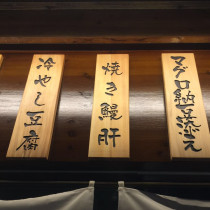 マグロ納豆添え
焼き鰻肝
冷やし豆腐